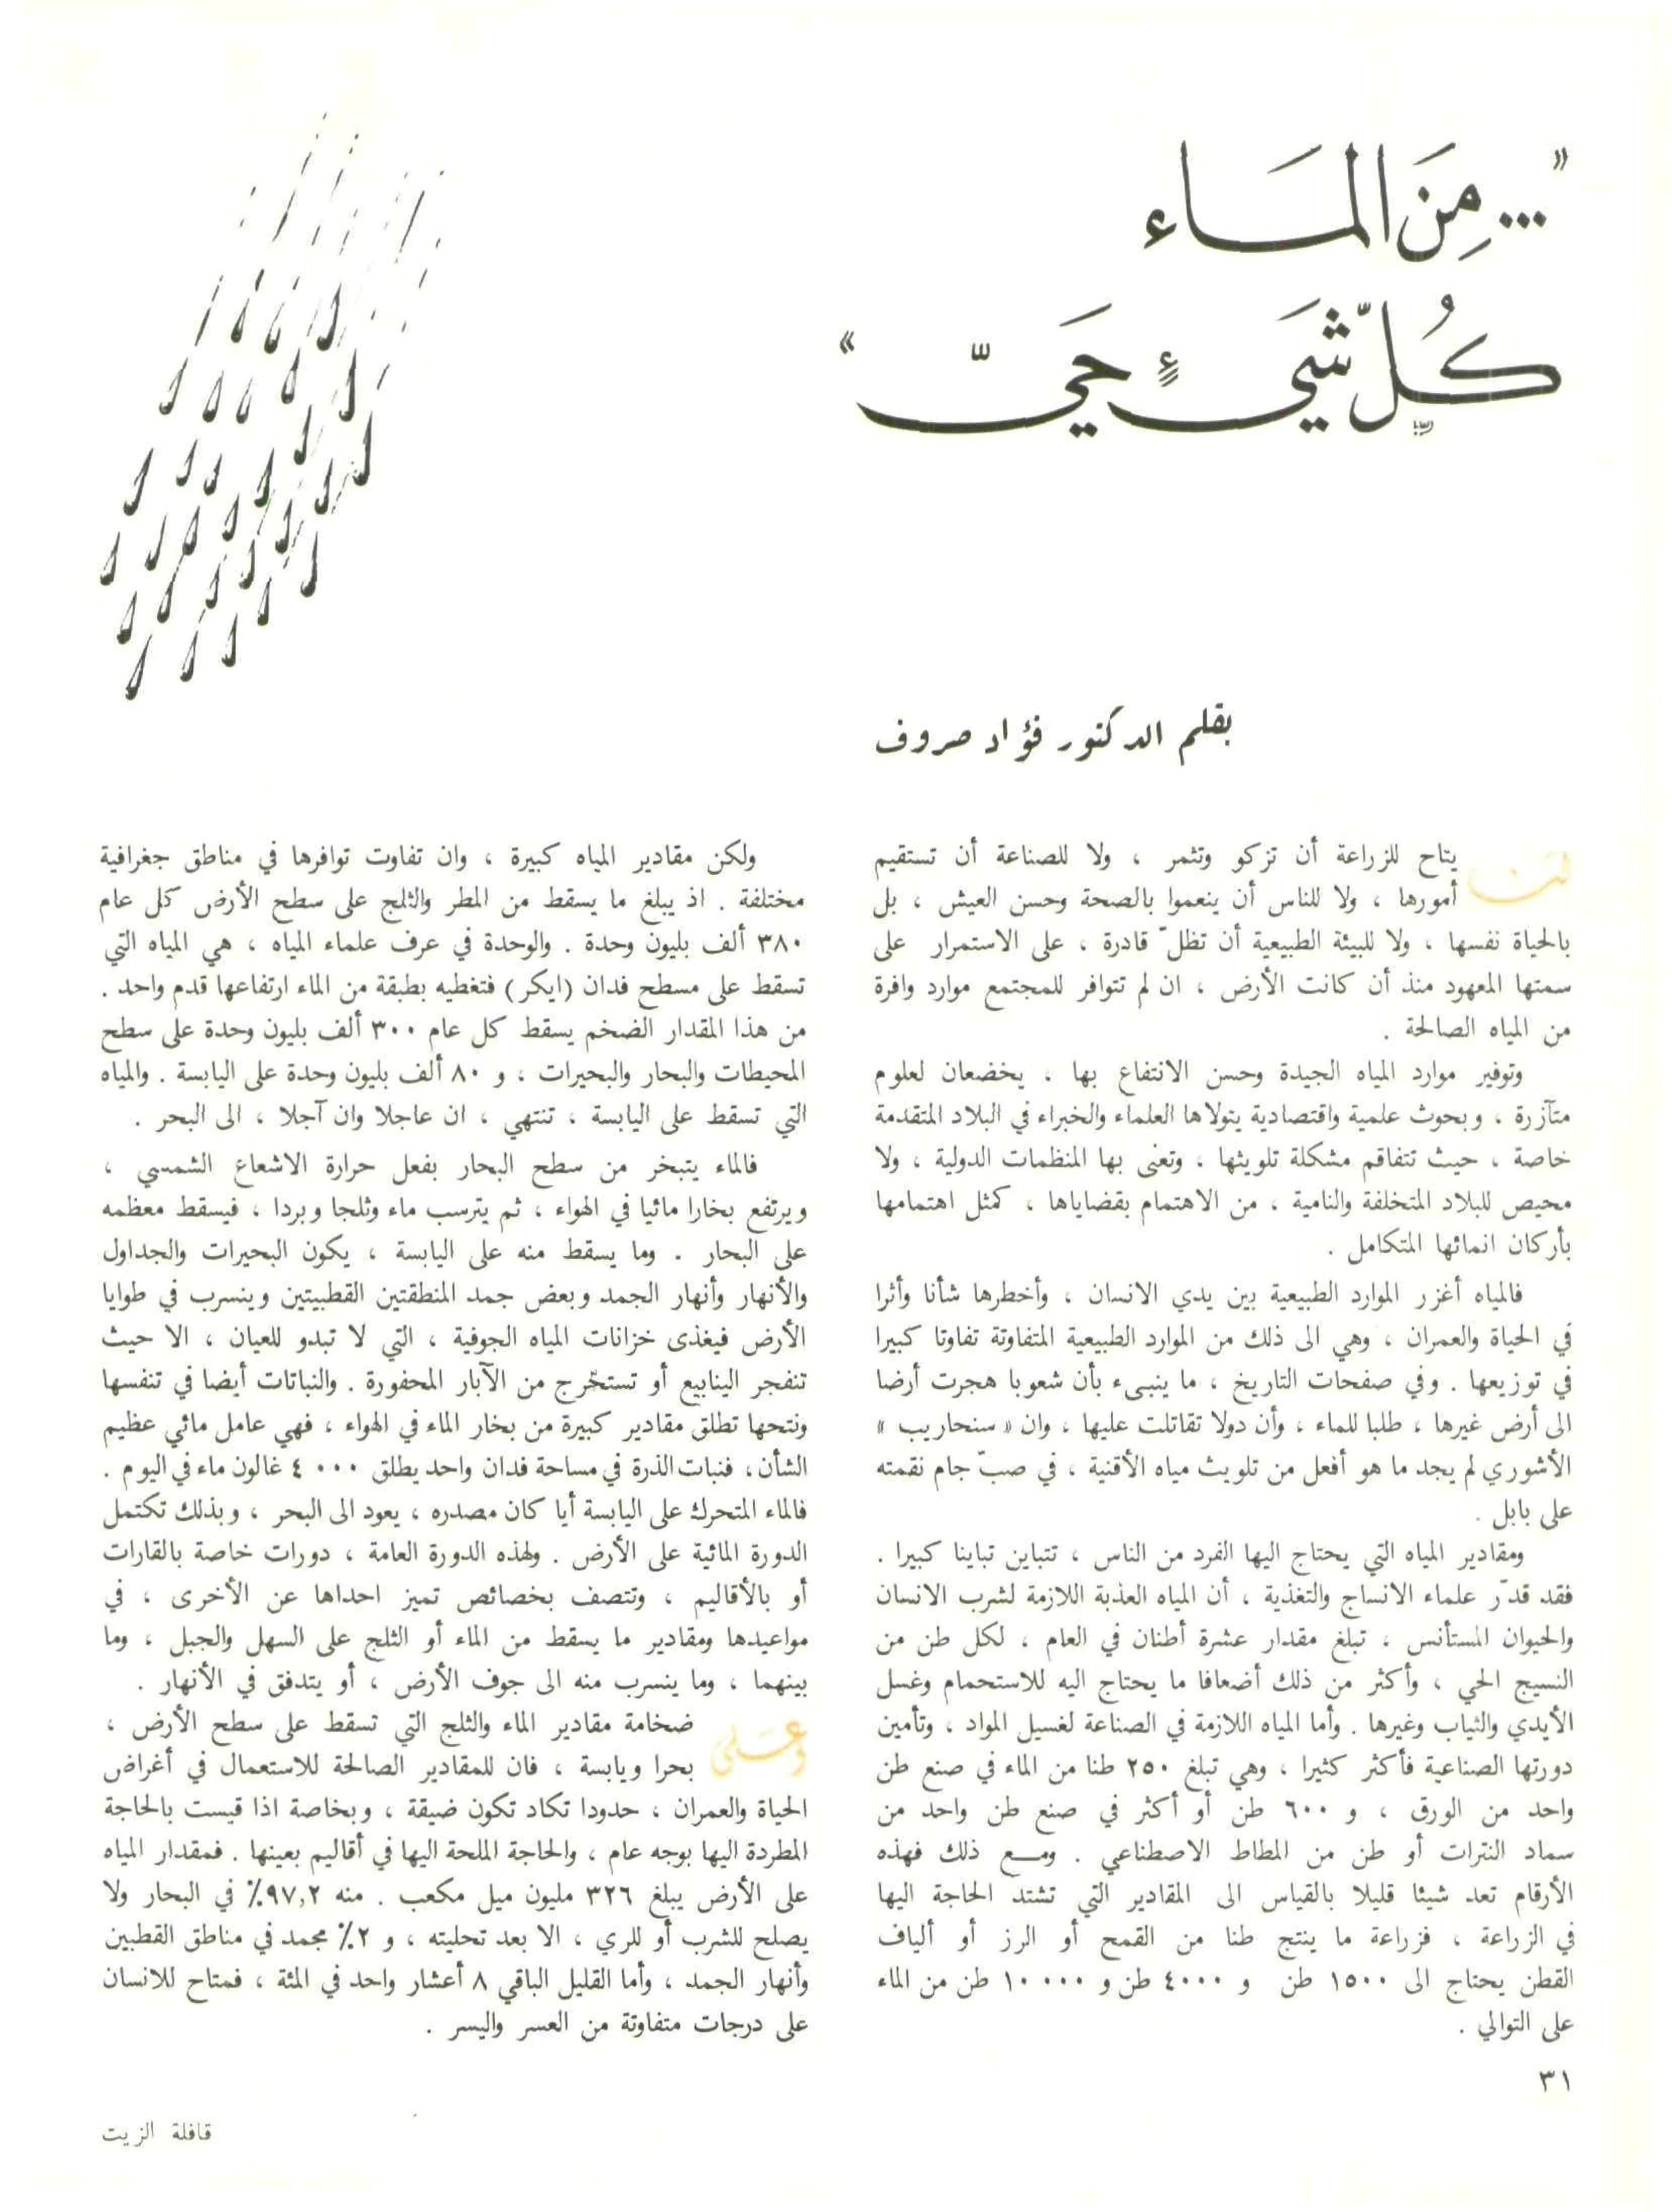 « ... مِنَ المَاء
كُلّ شَيءٍ حَيّ »
بقلم الدكتور فؤاد صروف
لن يتاح للزراعة أن تزكو وتثمر ، ولا للصناعة أن تستقيم
أمورها ، ولا للناس أن ينعموا بالصحة وحسن العيش ، بل
بالحياة نفسها ، ولا للبيئة الطبيعية أن تظلّ قادرة ، على الاستمرار على
سمتها المعهود منذ أن كانت الأرض ، ان لم تتوافر للمجتمع موارد وافرة
من المياه الصالحة .
وتوفير موارد المياه الجيدة وحسن الانتفاع بها ، يخضعان لعلوم
متآزرة ، وبحوث علمية واقتصادية يتولاها العلماء والخبراء في البلاد المتقدمة
خاصة ، حيث تتفاقم مشكلة تلويثها ، وتعنى بها المنظمات الدولية ، ولا
محيص للبلاد المتخلفة والنامية ، من الاهتمام بقضاياها ، كمثل اهتمامها
بأركان انمائها المتكامل .
فالمياه أغزر الموارد الطبيعية بين يدي الانسان ، وأخطرها شأنا وأثرا
في الحياة والعمران ، وهي الى ذلك من الموارد الطبيعية المتفاوتة تفاوتا كبيرا
في توزيعها . وفي صفحات التاريخ ، ما ينبىء بأن شعوبا هجرت أرضا
الى أرض غيرها ، طلبا للماء ، وأن دولا تقاتلت عليها ، وان « سنحاريب »
الأشوري لم يجد ما هو أفعل من تلويث مياه الأقنية ، في صبّ جام نقمته
على بابل .
ومقادير المياه التي يحتاج اليها الفرد من الناس ، تتباين تباينا كبيرا .
فقد قدّر علماء الانساج والتغذية ، أن المياه العذبة اللازمة لشرب الانسان
والحيوان المستأنس ، تبلغ مقدار عشرة أطنان في العام ، لكل طن من
النسيج الحي ، وأكثر من ذلك أضعافا ما يحتاج اليه للاستحمام وغسل
الأيدي والثياب وغيرها . وأما المياه اللازمة في الصناعة لغسيل المواد ، وتأمين
دورتها الصناعية فأكثر كثيرا ، وهي تبلغ ٢٥٠ طنا من الماء في صنع طن
واحد من الورق ، و ٦٠٠ طن أو أكثر في صنع طن واحد من
سماد النترات أو طن من المطاط الاصطناعي . ومــع ذلك فهذه
الأرقام تعد شيئا قليلا بالقياس الى المقادير التي تشتد الحاجة اليها
في الزراعة ، فزراعة ما ينتج طنا من القمح أو الرز أو ألياف
القطن يحتاج الى ١٥٠٠ طن و ٤٠٠٠ طن و ١٠٠٠٠ طن من الماء
على التوالي .
ولكن مقادير المياه كبيرة ، وان تفاوت توافرها في مناطق جغرافية
مختلفة . اذ يبلغ ما يسقط من المطر والثلج على سطح الأرض كل عام
٣٨٠ ألف بليون وحدة . والوحدة في عرف علماء المياه ، هي المياه التي
تسقط على مسطح فدان (ايكر) فتغطيه بطبقة من الماء ارتفاعها قدم واحد .
من هذا المقدار الضخم يسقط كل عام ٣٠٠ ألف بليون وحدة على سطح
المحيطات والبحار والبحيرات ، و ٨٠ ألف بليون وحدة على اليابسة . والمياه
التي تسقط على اليابسة ، تنتهي ، ان عاجلا وان آجلا ، الى البحر .
فالماء يتبخر من سطح البحار بفعل حرارة الاشعاع الشمسي ،
ويرتفع بخارا مائيا في الهواء ، ثم يترسب ماء وثلجا وبردا ، فيسقط معظمه
على البحار . وما يسقط منه على اليابسة ، يكون البحيرات والجداول
والأنهار وأنهار الجمد وبعض جمد المنطقتين القطبيتين وينسرب في طوايا
الأرض فيغذى خزانات المياه الجوفية ، التي لا تبدو للعيان ، الا حيث
تنفجر الينابيع أو تستخرج من الآبار المحفورة . والنباتات أيضا في تنفسها
ونتحها تطلق مقادير كبيرة من بخار الماء في الهواء ، فهي عامل مائي عظيم
الشأن، فنبات الذرة في مساحة فدان واحد يطلق ٤٠٠٠ غالون ماء في اليوم .
فالماء المتحرك على اليابسة أيا كان مصدره ، يعود الى البحر ، وبذلك تكتمل
الدورة المائية على الأرض . ولهذه الدورة العامة ، دورات خاصة بالقارات
أو بالأقاليم ، وتتصف بخصائص تميز احداها عن الأخرى ، في
مواعيدها ومقادير ما يسقط من الماء أو الثلج على السهل والجبل ، وما
بينهما ، وما ينسرب منه الى جوف الأرض ، أو يتدفق في الأنهار .
وعلى ضخامة مقادير الماء والثلج التي تسقط على سطح الأرض ،
بحرا ويابسة ، فان للمقادير الصالحة للاستعمال في أغراض
الحياة والعمران ، حدودا تكاد تكون ضيقة ، وبخاصة اذا قيست بالحاجة
المطردة اليها بوجه عام ، والحاجة الملحة اليها في أقاليم بعينها . فمقدار المياه
على الأرض يبلغ ٣٢٦ مليون ميل مكعب . منه ٩٧,٢٪ في البحار ولا
يصلح للشرب أو للري ، الا بعد تحليته ، و ٢٪ مجمد في مناطق القطبين
وأنهار الجمد ، وأما القليل الباقي ٨ أعشار واحد في المئة ، فمتاح للانسان
على درجات متفاوتة من العسر واليسر .
٣١
قافلة الزيت